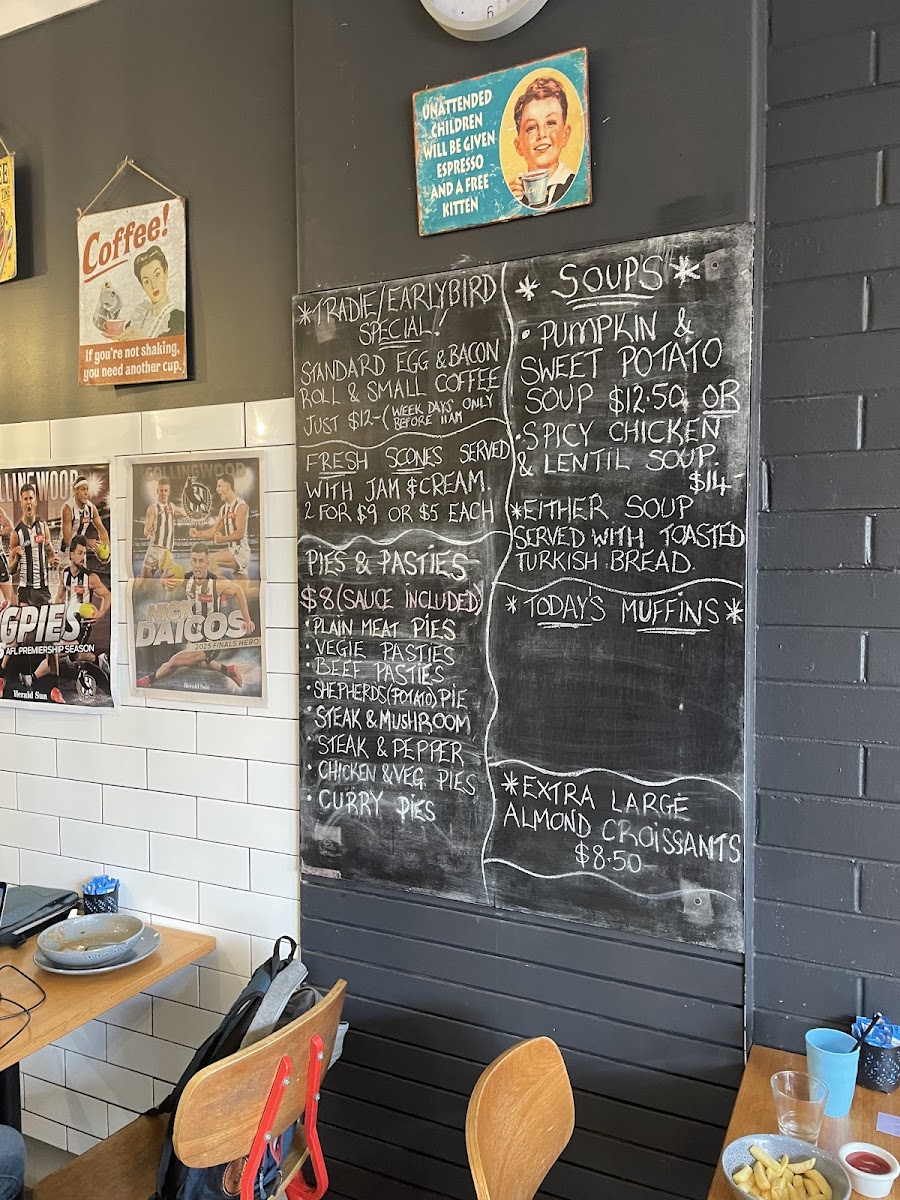 6
UNATTENDED
CHILDREN
WILL BE GIVEN
ESPRESSO
AND A FREE
KITTEN
Coffee!
If you're not shaking,
you need another cup.
GPIES
AFL PREMIERSHIP SEASON
Herald Sun
COLLINGWOOD
NICK
DAICOS
2025 FINALS HERO
Herald Sun
*TRADIE/EARLYBIRD
SPECIAL!
STANDARD EGG & BACON
ROLL & SMALL COFFEE
JUST $12-(WEEK DAYS ONLY
BEFORE 11AM
FRESH SCONES SERVED
WITH JAM & CREAM.
2 FOR $9 OR $5 EACH
PIES & PASTIES
$8 (SAUCE INCLUDED)
• PLAIN MEAT PIES
• VEGIE PASTIES
• BEEF PASTIES
• SHEPHERDS(POTATO) PIE
• STEAK & MUSHROOM
• STEAK & PEPPER
• CHICKEN & VEG PIES
• CURRY PIES
* SOUPS *
• PUMPKIN &
SWEET POTATO
SOUP $12.50 OR
• SPICY CHICKEN
& LENTIL SOUP.
$14-
*EITHER SOUP
SERVED WITH TOASTED
TURKISH BREAD.
* TODAY'S MUFFINS *
*EXTRA LARGE
ALMOND CROISSANTS
$8.50